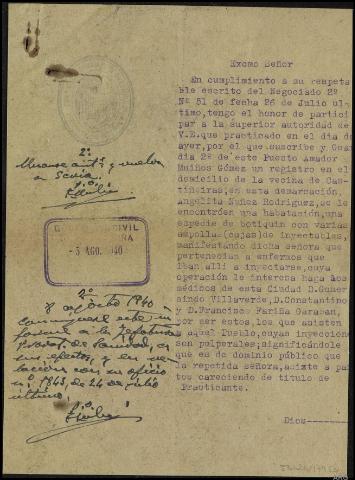 2º
a Secría
Excmo Señor
En cumplimiento a su respeta
ble escrito del Negociado 2º
Nº 51 de fecha 26 de Julio ul
timo, tengo el honor de partici
par a la superior autoridad de
V.E. que practicado en el dia de
ayer, por el que suscribe y Guar
dia 2º de este Puesto Amador
Muiños Gómez un registro en el
domicilio de la vecina de
en esta demarcación,
Angelita Nuñez Rodriguez, se le
encontrón una habatación, una
especie de botiquin con varias
ampollas (cajas) de inyectables,
manifestando dicha señora que
pertenecian a enfermos que
iban alli a inyectarse, cuya
operación le interesa haga los
médicos de esta Ciudad D. Gumer
sindo Villaverde, D. Constantino
y D. Francisco Fariña
por ser estos, los que asisten
a aquel Pueblo, cuyas inyeccion
son significándole
que es de dominio público que
la repetida señora, asiste a par
tos careciendo de titulo de
Practicante.
Dios
CIVIL
- 3 AGO. 940
2º
8 agosto 1940
Comuniquese este in
forme a la Jefatura
Provcl. de Sanidad, a
sus efectos, y en re
lacion con su oficio
nº 1843, de 24 de julio
último.